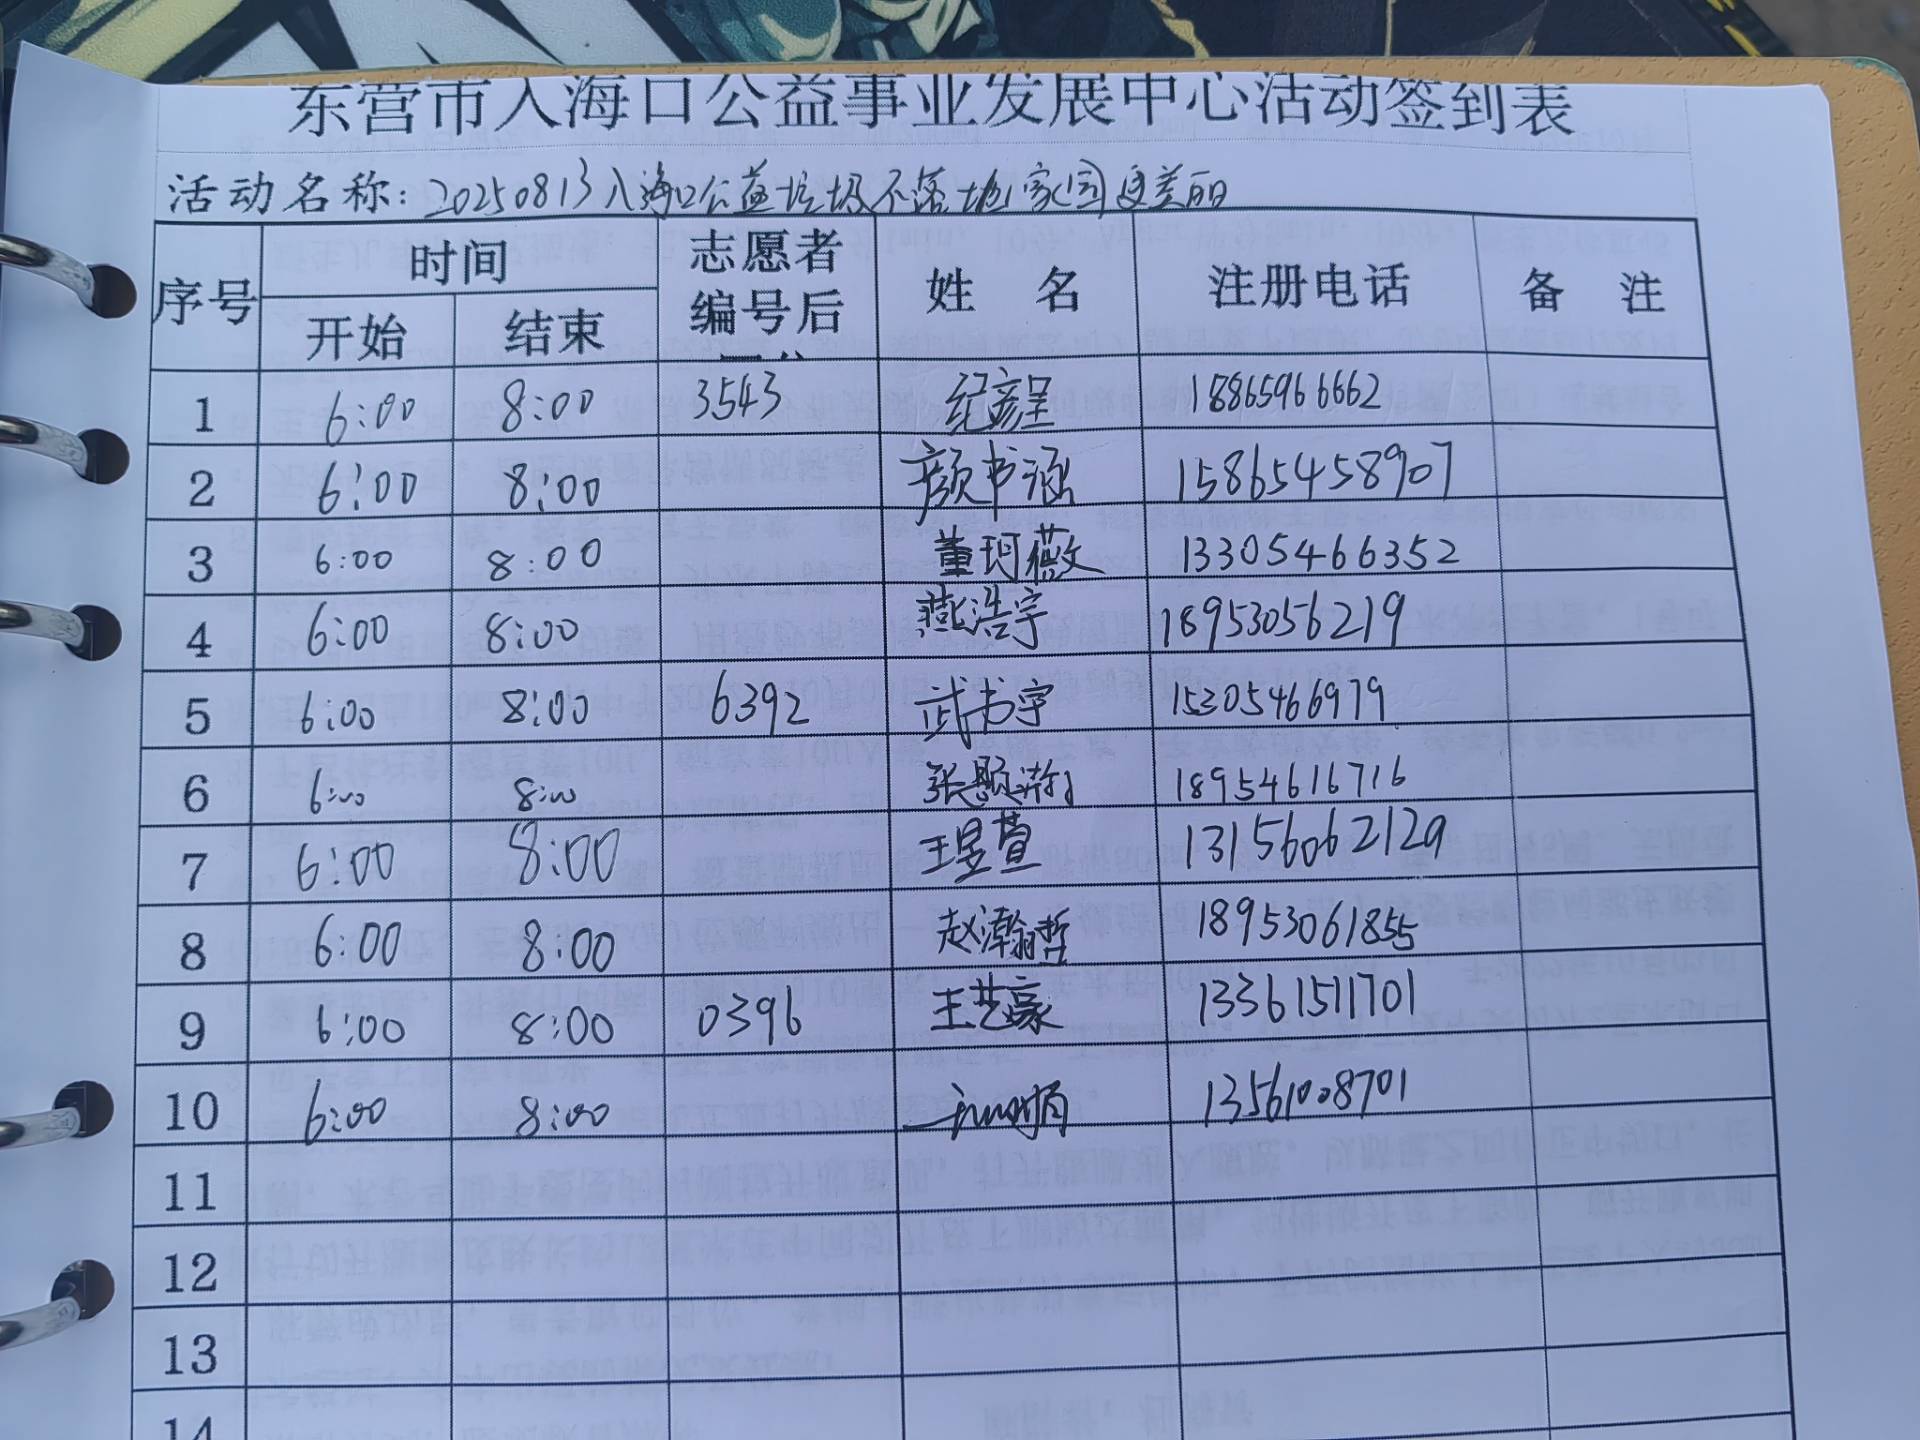 东营市入海口公益事业发展中心活动签到表
活动名称：20250813入海口公益垃圾不落地家园更美丽
序号 时间 志愿者编号后 姓名 注册电话 备注
开始 结束
1 6:00 8:00 3543 纪彦呈 18865966662
2 6:00 8:00 颜书涵 15865458907
3 6:00 8:00 董珂薇 13305466352
4 6:00 8:00 燕浩宇 18953056219
5 6:00 8:00 6392 武书宇 15305466979
6 6:00 8:00 张题瀚 18954616716
7 6:00 8:00 王昱萱 13156062129
8 6:00 8:00 赵瀚哲 18953061855
9 6:00 8:00 0396 王艺豪 13361511701
10 6:00 8:00 13561008701
11
12
13
14